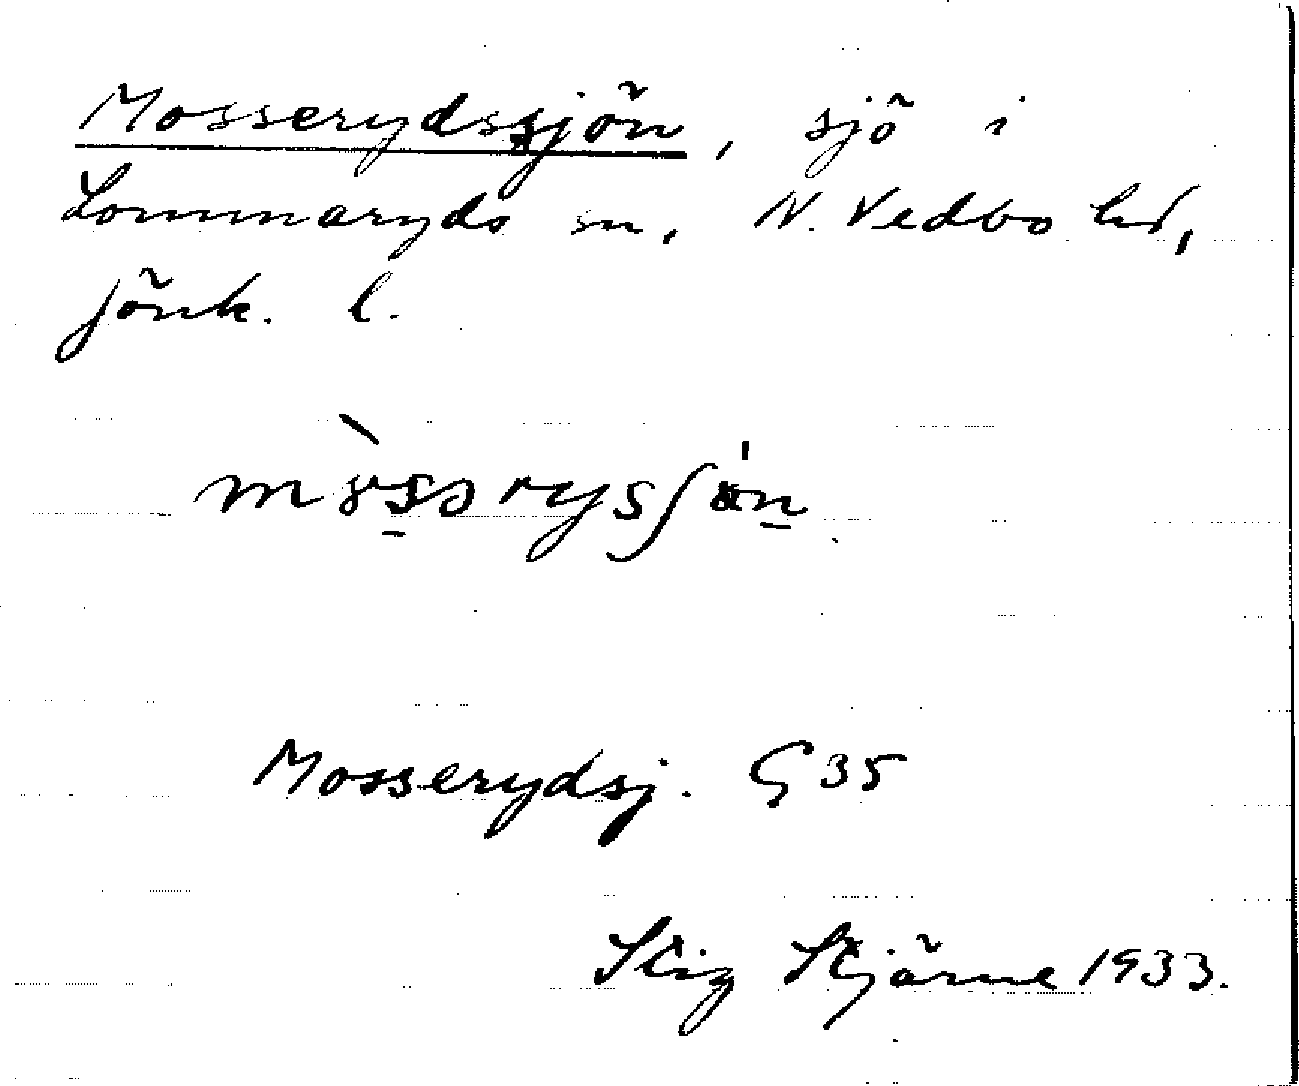 Mosserydssjön, sjö i
Lommaryds sn, N. Vedbo hd,
Jönk. l.
Mosserydsj. G 35
Stig Stjärne 1933.